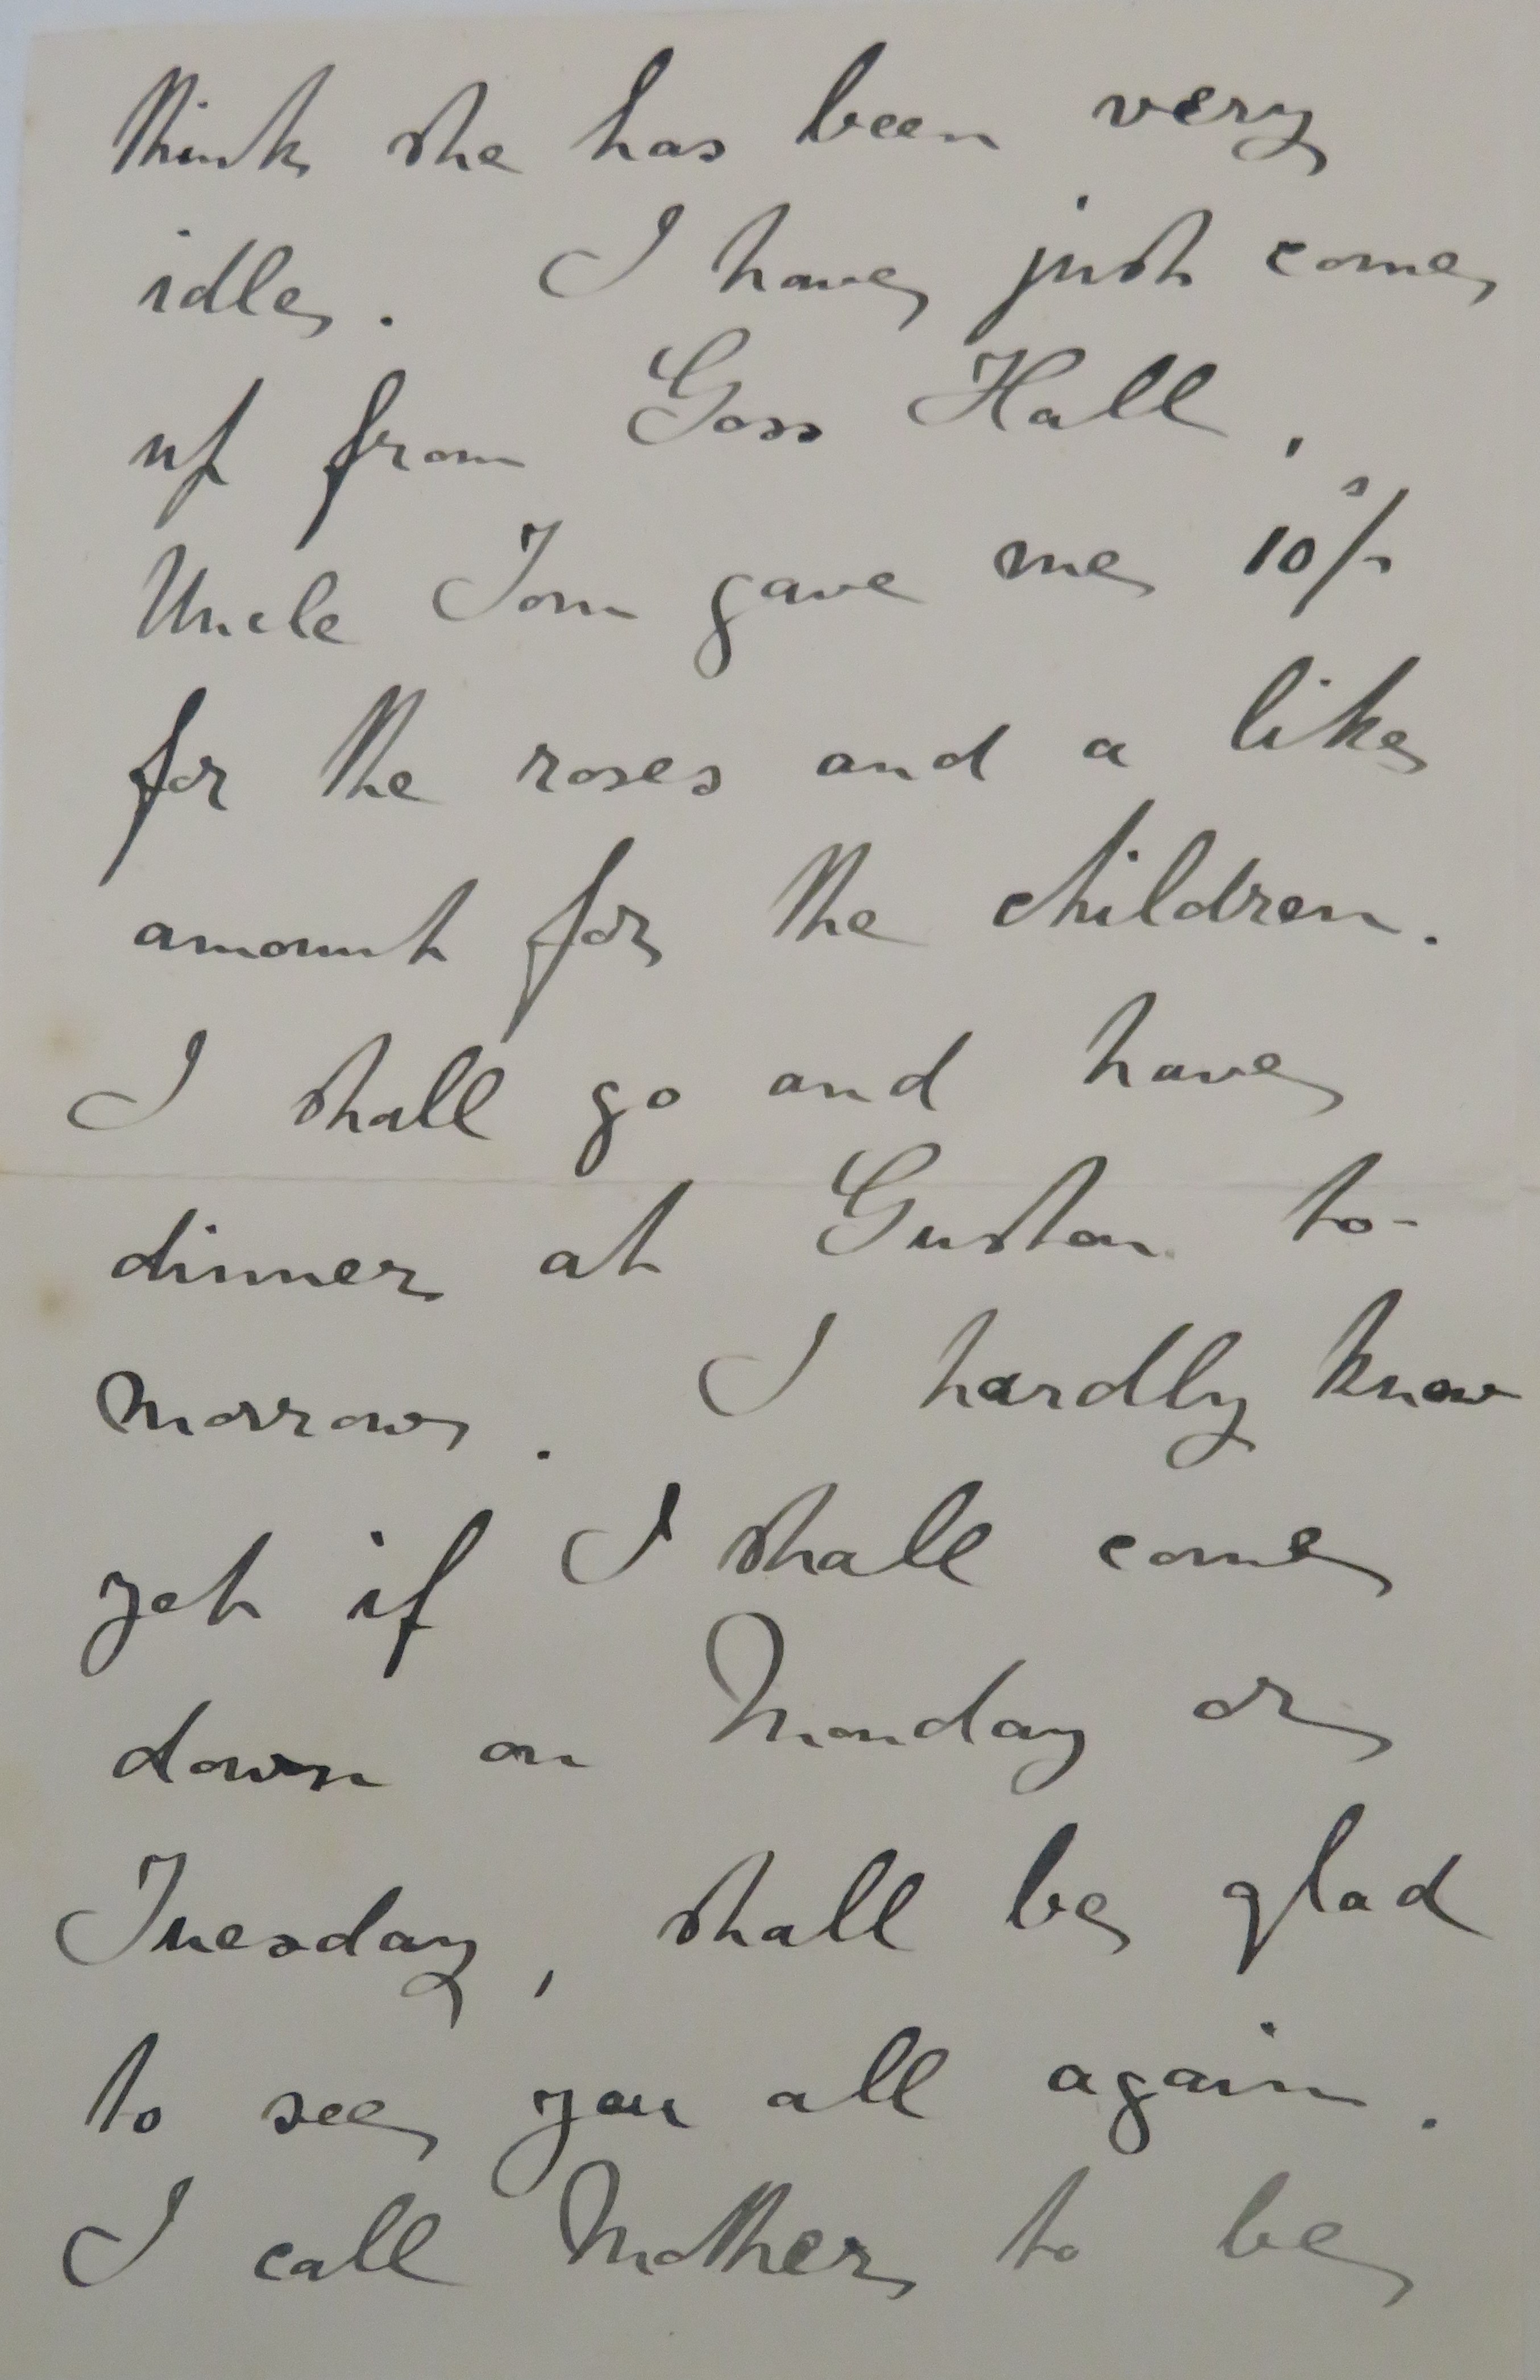 think she has been very
idle. I have just come
up from Goss Hall,
Uncle Tom gave me 10/- s
for the roses and a like
amount for the children.
I shall go and have
dinner at Guston to-
morrow. I hardly know
yet if I shall come
down on Monday or
Tuesday, shall be glad
to see you all again.
I call Mother to be